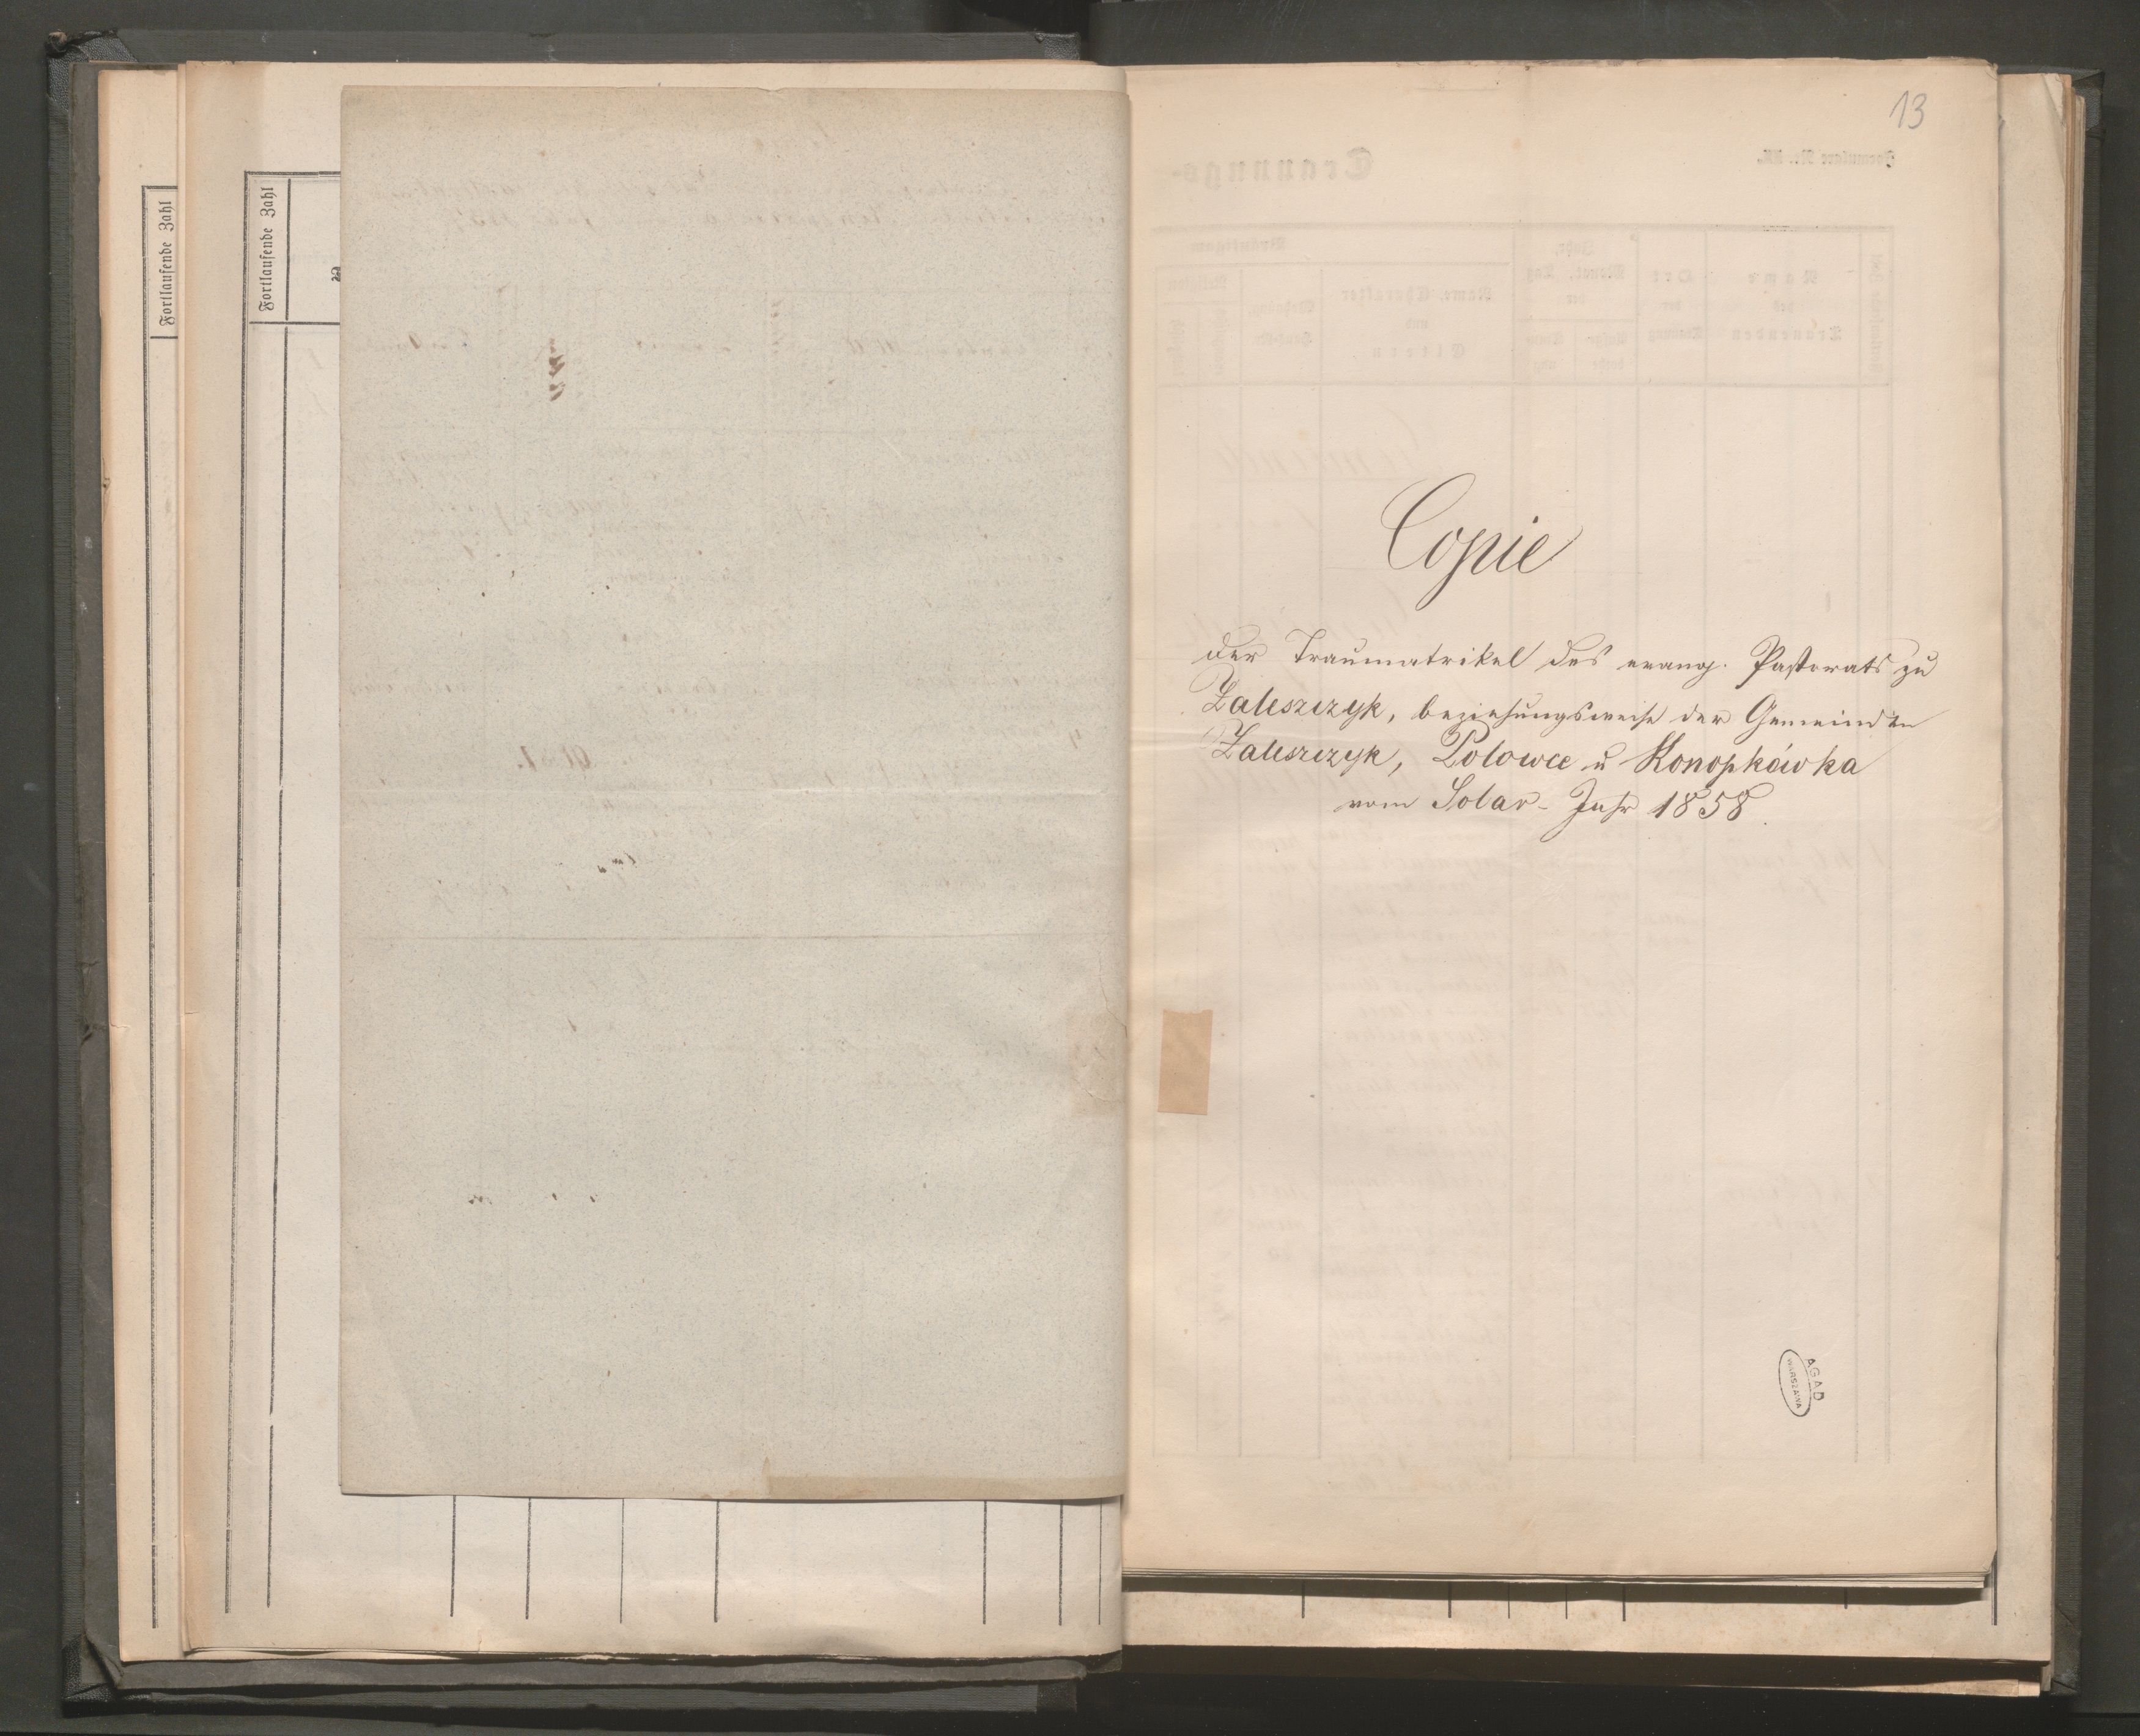 Fortlaufende Zahl
Fortlaufende Zahl
13
Copie
der Traumatrikel des evang. Pastorats zu
Zaleszczyk, beziehungsweise der Gemeinden
Zaleszczyk, Polowce u Konopkówka
vom Solar-Jahr 1858.
AGAD
WARSZAWA